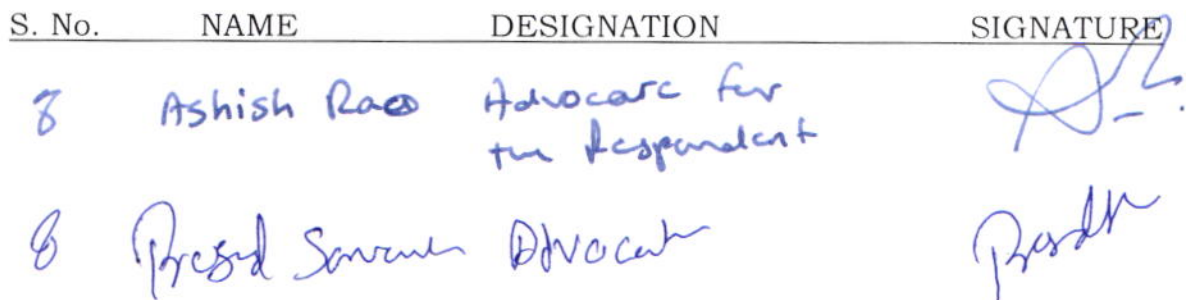 S. No. NAME DESIGNATION SIGNATURE
8 Ashish Rao Advocate for
the Respondent
8 Advocate